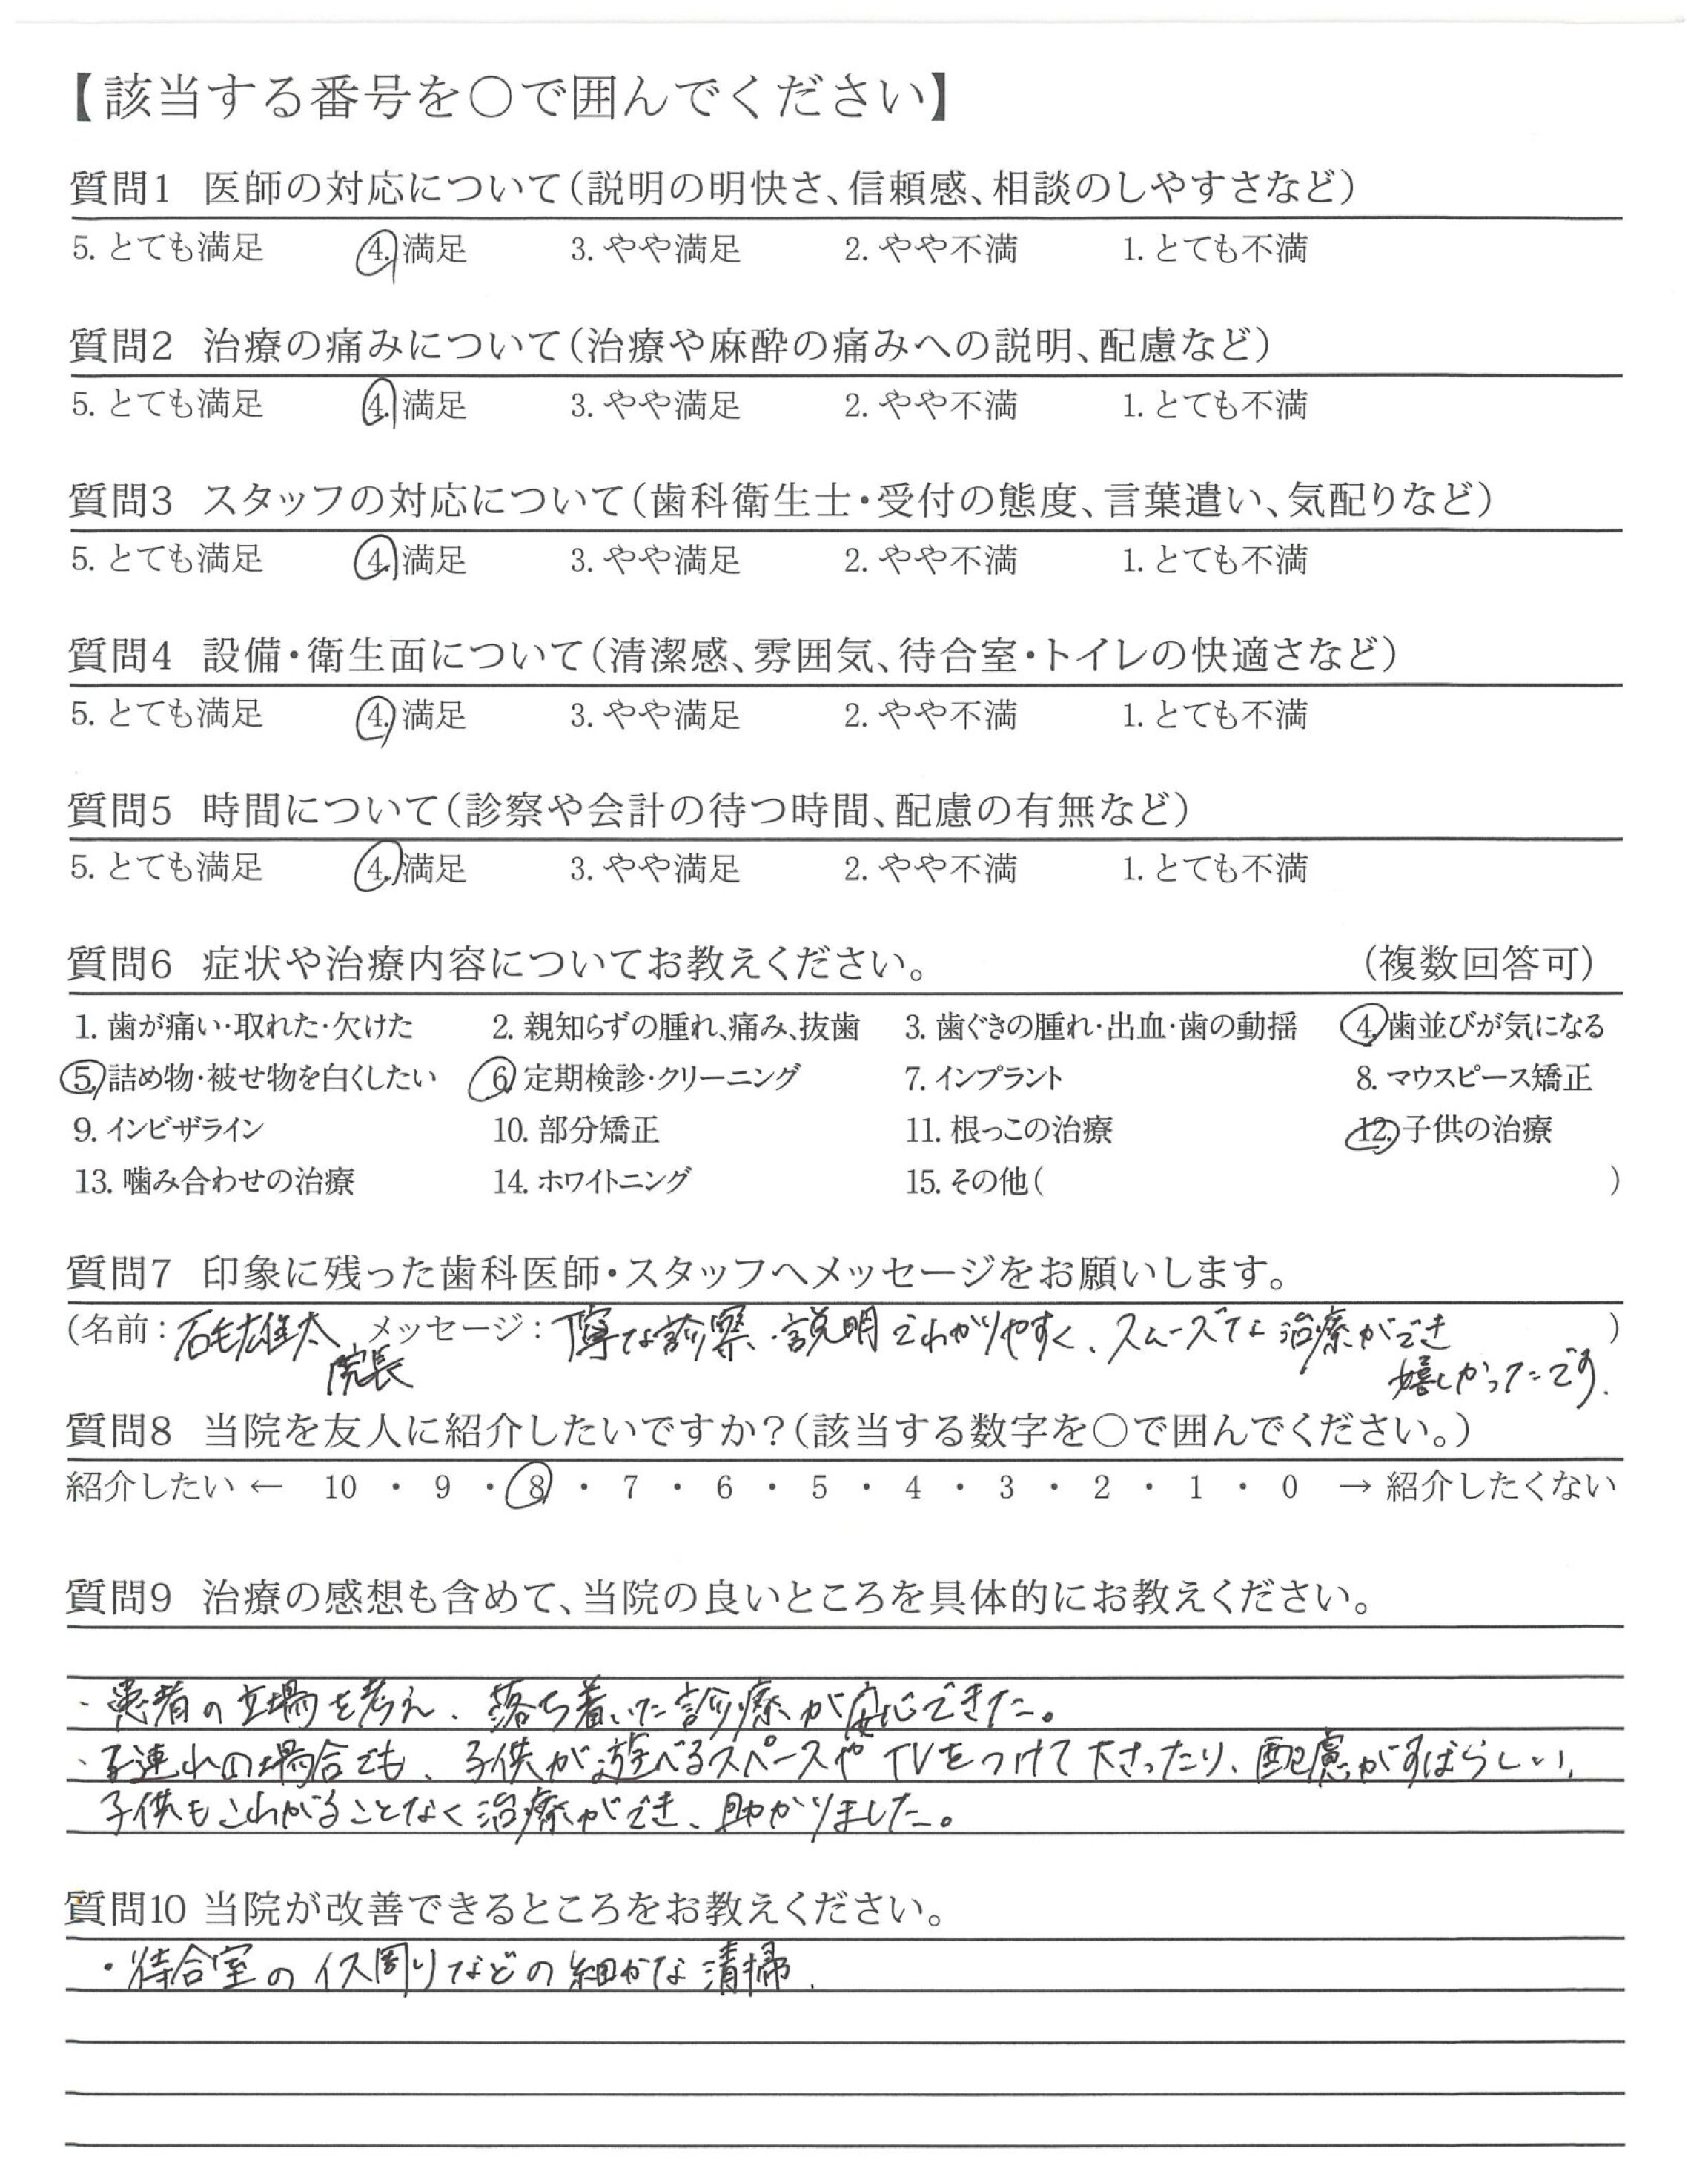 【該当する番号を〇で囲んでください】
質問1 医師の対応について(説明の明快さ、信頼感、相談のしやすさなど)
5. とても満足 4. 満足 3. やや満足 2. やや不満 1. とても不満
質問2 治療の痛みについて(治療や麻酔の痛みへの説明、配慮など)
5. とても満足 4. 満足 3. やや満足 2. やや不満 1. とても不満
質問3 スタッフの対応について(歯科衛生士・受付の態度、言葉遣い、気配りなど)
5. とても満足 4. 満足 3. やや満足 2. やや不満 1. とても不満
質問4 設備・衛生面について(清潔感、雰囲気、待合室・トイレの快適さなど)
5. とても満足 4. 満足 3. やや満足 2. やや不満 1. とても不満
質問5 時間について(診察や会計の待つ時間、配慮の有無など)
5. とても満足 4. 満足 3. やや満足 2. やや不満 1. とても不満
質問6 症状や治療内容についてお教えください。 (複数回答可)
1. 歯が痛い・取れた・欠けた 2. 親知らずの腫れ、痛み、抜歯 3. 歯ぐきの腫れ・出血・歯の動揺 4. 歯並びが気になる
5. 詰め物・被せ物を白くしたい 6. 定期検診・クリーニング 7. インプラント 8. マウスピース矯正
9. インビザライン 10. 部分矯正 11. 根っこの治療 12. 子供の治療
13. 噛み合わせの治療 14. ホワイトニング 15. その他( )
質問7 印象に残った歯科医師・スタッフへメッセージをお願いします。
(名前:石毛雄太 メッセージ:丁寧な診察・説明でわかりやすく、スムーズな治療ができ )
院長 嬉しかったです。
質問8 当院を友人に紹介したいですか?(該当する数字を〇で囲んでください。)
紹介したい ← 10 ・ 9 ・ 8 ・ 7 ・ 6 ・ 5 ・ 4 ・ 3 ・ 2 ・ 1 ・ 0 → 紹介したくない
質問9 治療の感想も含めて、当院の良いところを具体的にお教えください。
・患者の立場を考え、落ち着いた診療が安心できた。
・子連れの場合でも、子供が遊べるスペースやTVをつけて下さったり、配慮がすばらしい。
子供もこわがることなく治療ができ、助かりました。
質問10 当院が改善できるところをお教えください。
・待合室のイス周りなどの細かな清掃.